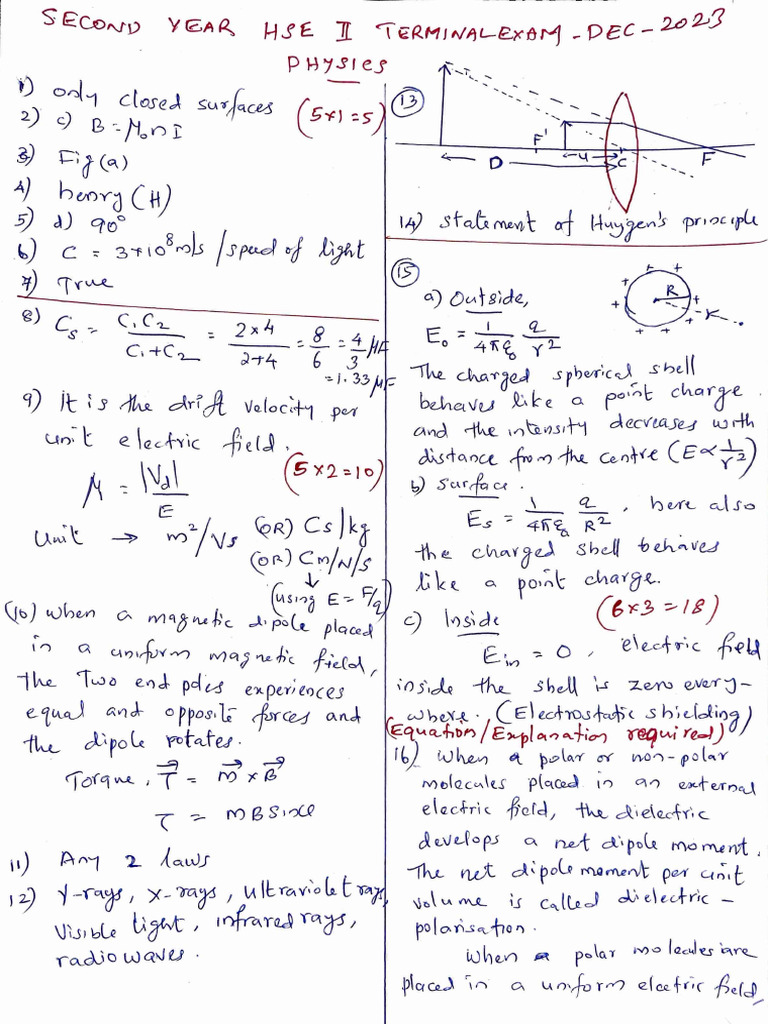 SECOND YEAR HSE II TERMINAL EXAM - DEC - 2023
PHYSICS
1) only closed surfaces
2) c) B = μ₀nI (5×1=5)
3) Fig(a)
4) henry (H)
5) d) 90°
6) C = 3×10⁸m/s / speed of light
7) True
8) Cs = C₁C₂/C₁+C₂ = 2×4/2+4 = 8/6 = 4/3 μF
= 1.33 μF
9) It is the drift velocity per
unit electric field.
μ = |Vd|/E (5×2=10)
Unit → m²/Vs (OR) Cs/kg
(OR) Cm/N/s
↓
(using E = F/q)
(10) When a magnetic dipole placed
in a uniform magnetic field,
the Two end poles experiences
equal and opposite forces and
the dipole rotates.
Torque, τ⃗ = m⃗ × B⃗
τ = mB Sin
11) Any 2 laws
12) γ-rays, x-rays, ultraviolet rays,
Visible light, infrared rays,
radiowaves.
13
F' u C F
D
14) Statement of Huygen's principle
15
a) Outside, R
E₀ = 1/4πε₀ q/r²
The charged spherical shell
behaves like a point charge.
and the intensity decreases with
distance from the centre (E∝1/r²)
b) Surface.
Es = 1/4πε₀ q/R², here also
the charged shell behaves
like a point charge.
(6×3=18)
c) Inside
Ein = 0, electric field
inside the shell is zero every-
where. (Electrostatic shielding)
(Equation/Explanation required)
16) When a polar or non-polar
molecules placed in an external
electric field, the dielectric
develops a net dipole moment.
The net dipole moment per unit
volume is called dielectric-
polarisation.
When a polar molecules are
placed in a uniform electric field,